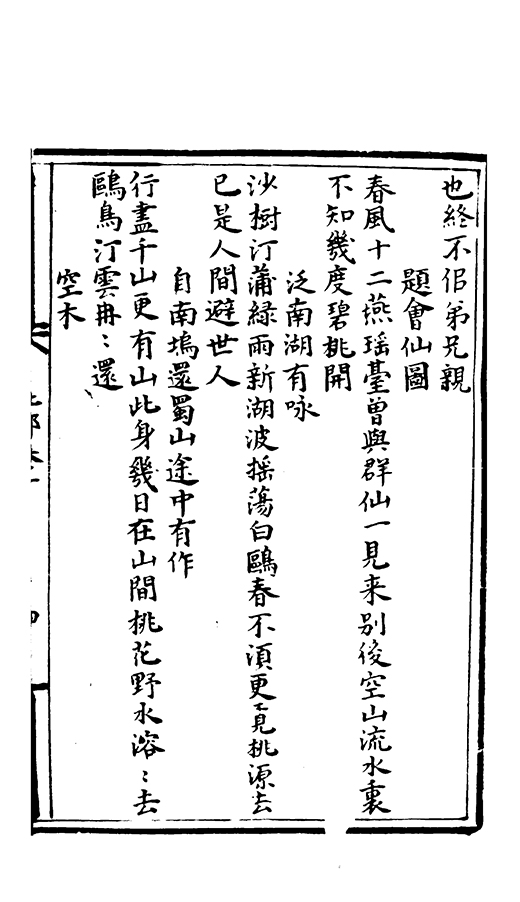 也終不佀弟兄親
題會仙圖
春風十二燕瑶臺曽與群仙一見来别後空山流水裏
不知幾度碧桃開
泛南湖有咏
沙樹汀蒲緑雨新湖波摇蕩白鷗春不湏更覓桃源去
已是人間避世人
自南塢還蜀山途中有作
行盡千山更有山此身幾日在山間桃花野水溶〻去
鷗鳥汀雲冉〻還
空木